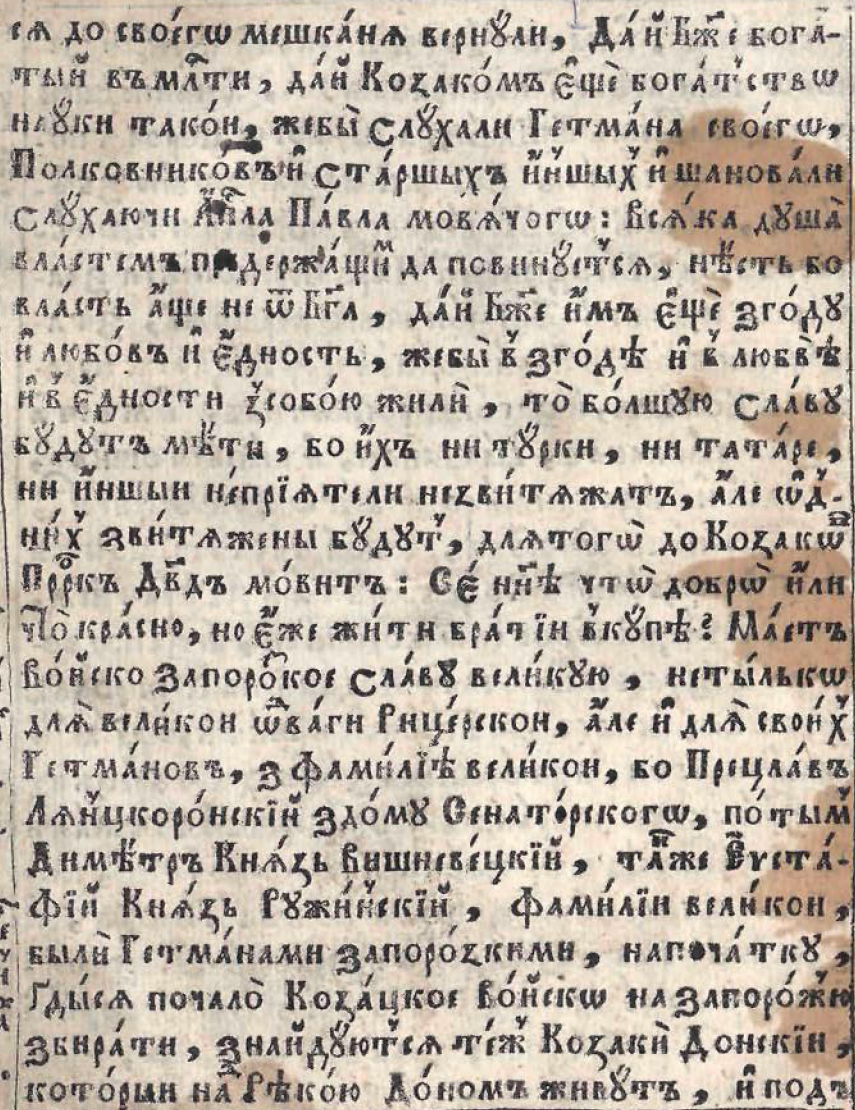 сѧ до своегѡ мешка́нѧ верну́ли, Да́й Бж҃е бога́-
тый въ мл҃ти, да́й Коꙁако́мъ є҆щѐ бога́тствѡ
нау́ки тако́и, жебы̀ слу́хали Гетма́на своегѡ,
Полковнико́въ и҆ ста́ршыхъ и҆́ншыхъ и҆ шанова́ли
слу́хаючи А҆пⷭ҇ла Па́вла мовѧ́чогѡ: Всѧ́ка дꙋша̀
вла́стемъ предержа́щимъ да повинꙋ́етсѧ, нѣ́сть бо
вла́сть а҆́ще не ѿ Бг҃а, да́й Бж҃е и҆́мъ є҆щѐ ꙁго́дꙋ
и҆ любо́въ и҆ є҆́дность, жебы̀ в ꙁго́дѣ и҆ в любвѣ
и҆ в є҆́дности ꙁ собо́ю жилѝ, то̀ бо́лшꙋю сла́вꙋ
бꙋ́дꙋтъ мѣ́ти, бо и҆́хъ ни тꙋ́рки, ни тата́ре,
ни и҆́ншыи непрїѧтели неꙁви́тѧжатъ, а҆́ле ѡ҆д-
ни́хъ ꙁви́тѧжены бꙋ́дꙋтъ, длѧтогѡ̀ до Коꙁакѡ́въ
Прⷪ҇ркъ Дв҃дъ мо́витъ: Сѐ нн҃ѣ что̀ добро̀ и҆́ли
что̀ кра́сно, но є҆́же жи́ти бра́тїи вкꙋ́пѣ? Ма́етъ
Во́йско Запоро́ꙁкое сла́вꙋ вели́кꙋю, неты́лькѡ
длѧ̀ вели́кои ѿва́ги Рице́рскои, а҆́ле и҆ длѧ̀ свои́хъ
Гетма́новъ, ꙁ фами́лїѣ вели́кои, бо Прецла́въ
Лѧ́нцкоро́нскїй ꙁдо́мꙋ Сенато́рскогѡ, по́тымъ
Димѣ́тръ Кнѧ́ꙁь Вишневе́цкїй, та́кже Еѵста́-
фїй Кнѧ́ꙁь Рꙋжи́нскїй, фами́лїи вели́кои,
былѝ Гетма́нами Запоро́ꙁкими, напоча́ткꙋ,
Гды́сѧ почало̀ Коꙁа́цкое Во́йскѡ на Запоро́жю
ꙁбира́ти, ꙁнайдꙋ́ютсѧ те́жъ Коꙁакѝ Донскїи,
кото́рыи над Рѣко́ю До́номъ живꙋ́тъ, и҆ подъ